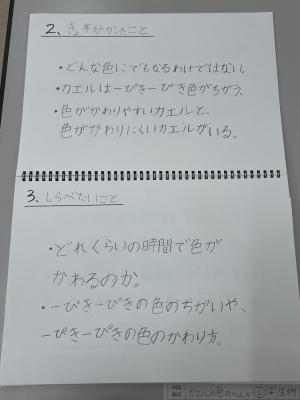 2、きょ年分かったこと
・どんな色にでもなるわけではない。
・カエルは一ぴき一ぴき色がちがう。
・色がかわりやすいカエルと、
色がかわりにくいカエルがいる。
3、しらべたいこと
・どれくらいの時間で色が
かわるのか。
・一ぴき一ぴきの色のちがいや、
一ぴき一ぴきの色のかわり方。
カエルの色のへんか② 生物